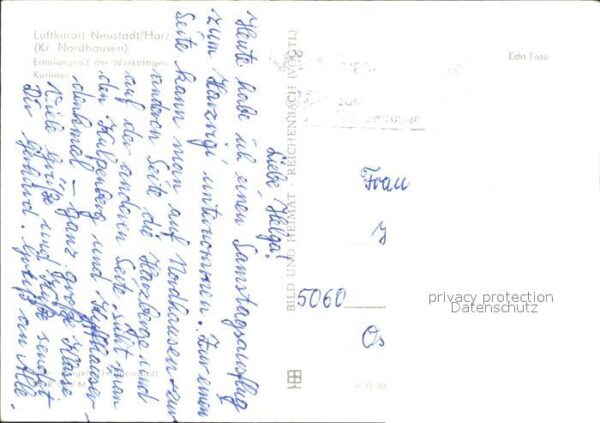 Luftkurort Neustadt/Harz
(Kr. Nordhausen)
Erholungsort der Werktätigen
Kurhaus
Echt Foto
Liebe Helga!
Heute habe ich einen Samstagsausflug
zum Harzrigi unternommen. Zur einen
Seite kann man auf Nordhausen zur
anderen Seite die Harzberge und
auf der anderen Seite sieht man
den Kulpenberg und Kyffhäuser-
denkmal – ganz große Klasse
Viele Grüße und Küße sendet
Dir Gerhard. Gruß an Alle.
BILD UND HEIMAT · REICHENBACH (VOGTL)
Frau
5060
privacy protection
Datenschutz
V 11 50